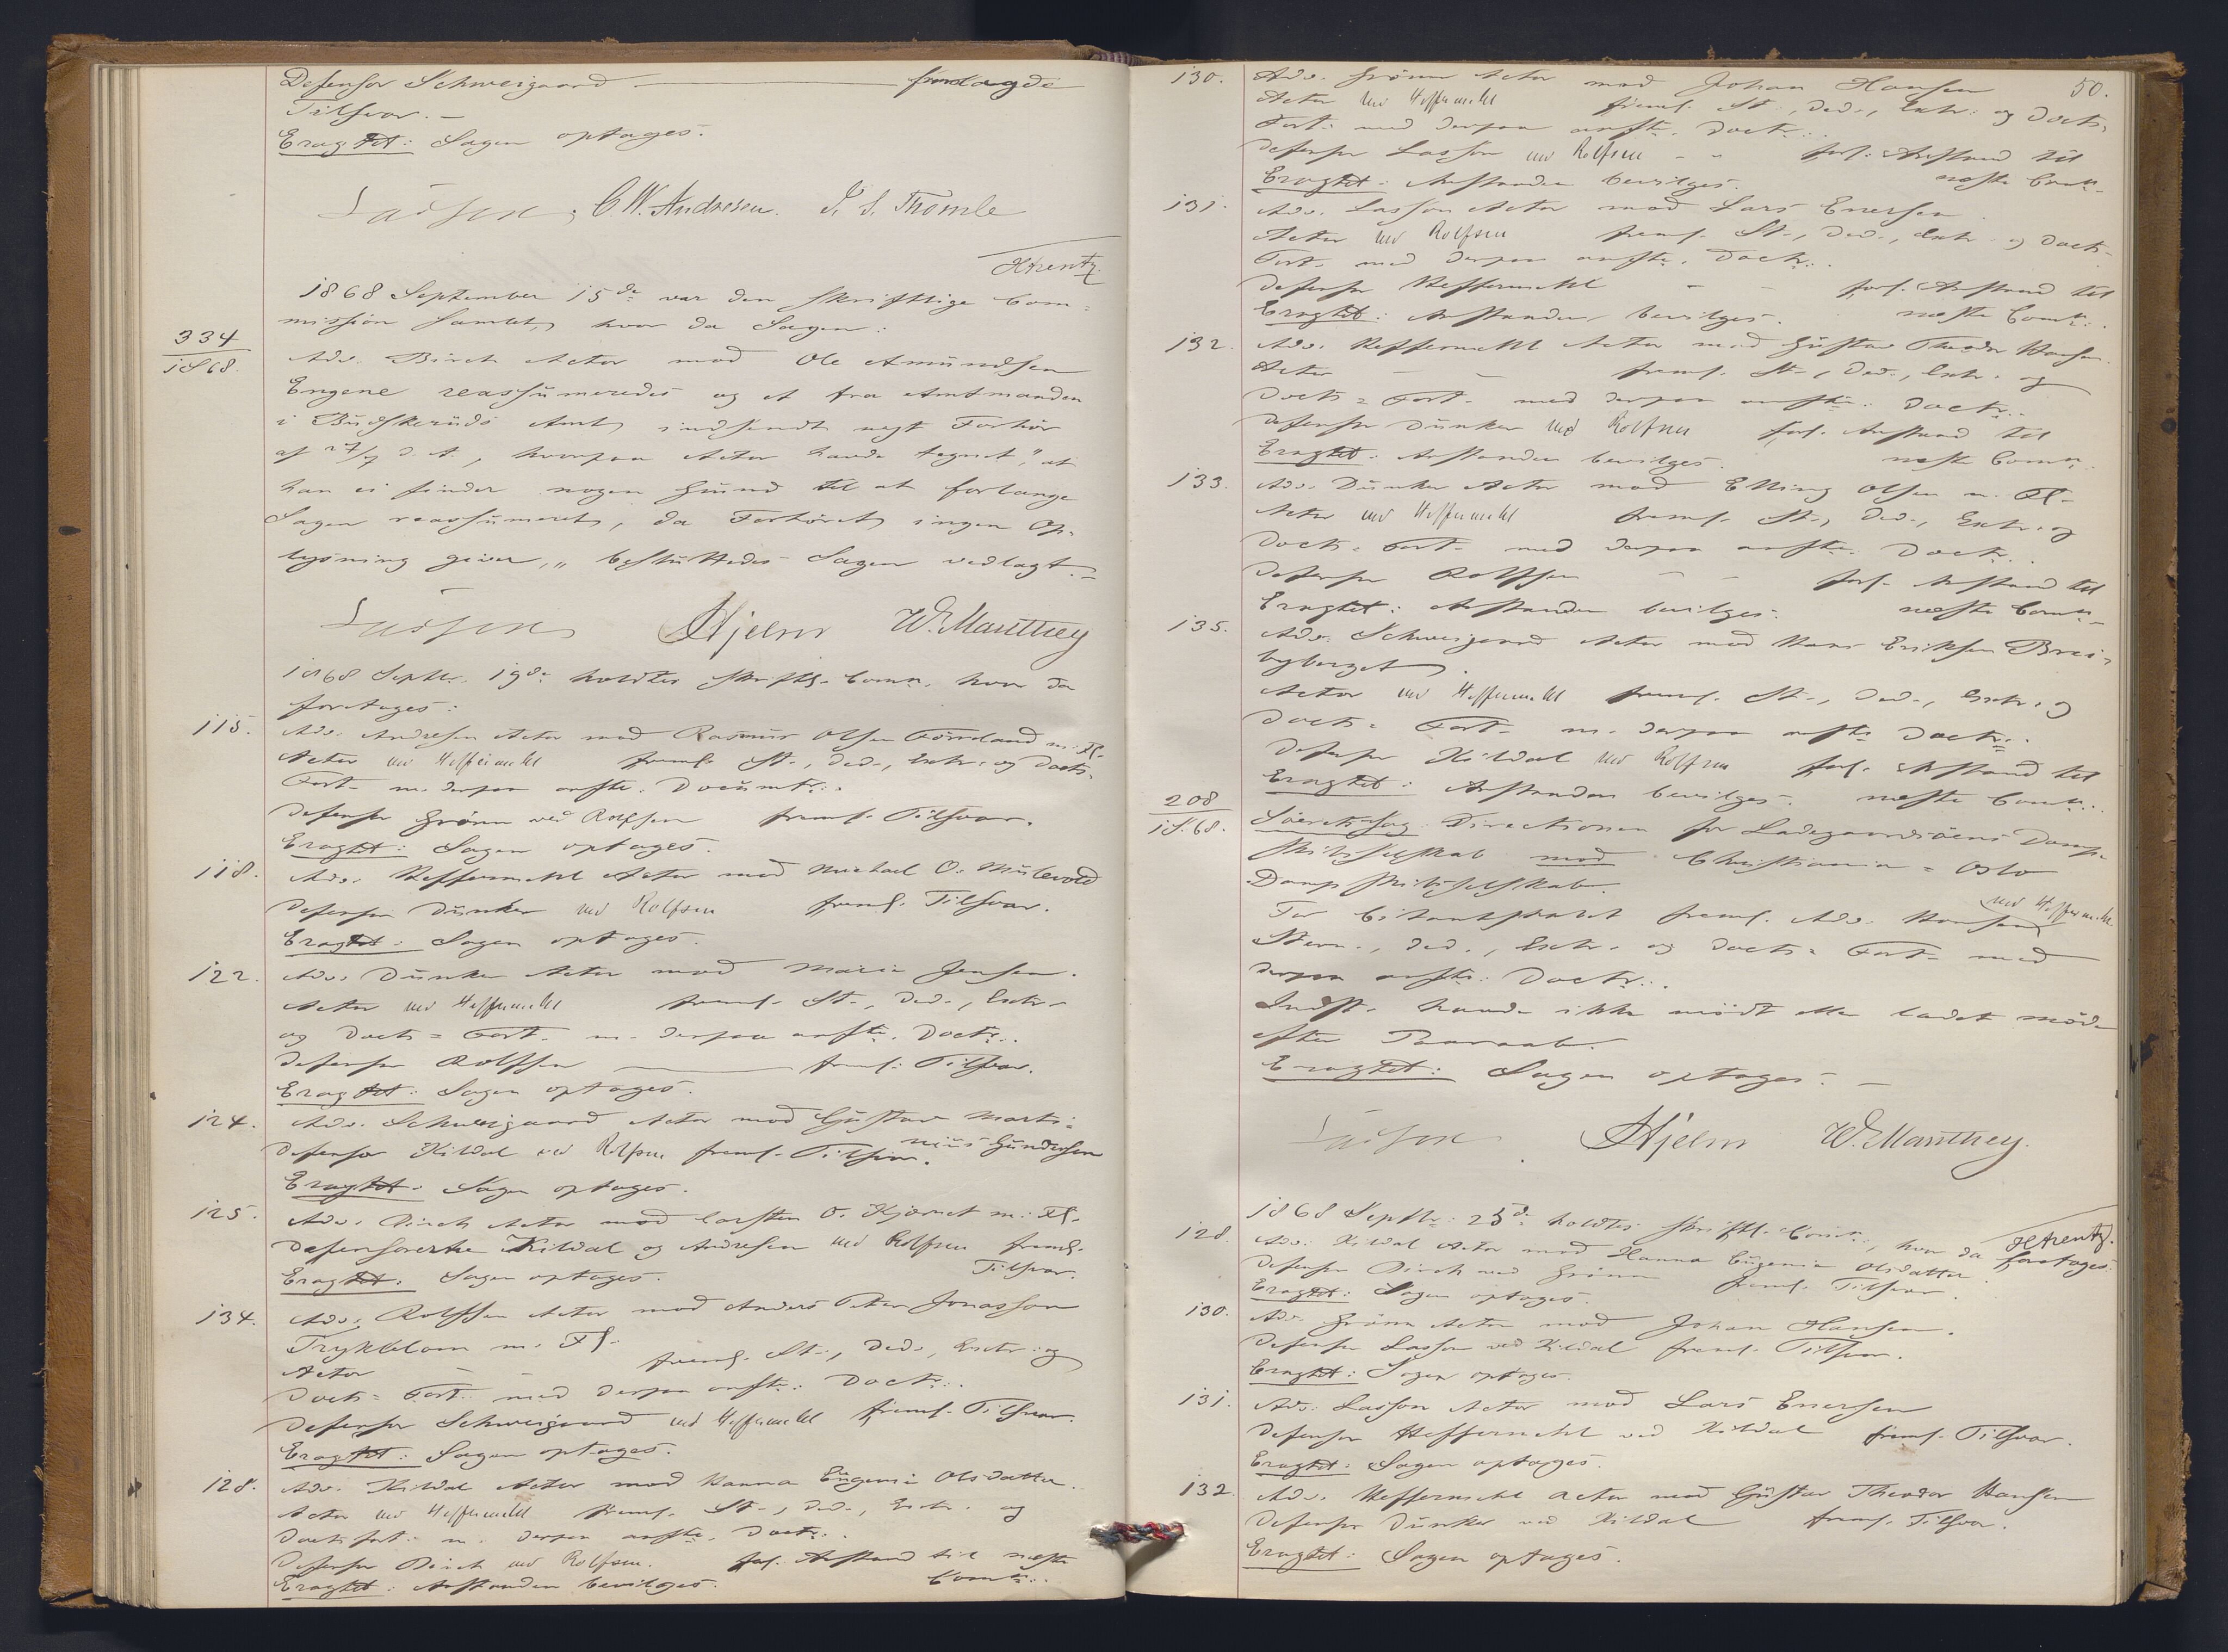 Defensor Schweigaard — fremlagde
Tilsvar. –
Eragtet: Sagen optages.
Lasson, C W. Andresen. I. S. Thomle
HArentz.
1868 September 15de var den skriftlige Com=
mission samlet, hvor da Sagen:
334
i S 68.
Adv. Birch Actor mod Ole Amundsen
Engene reassumeredes og et fra Amtmanden
i Buskeruds Amt indsendt nyt Forhør
af 27/7 d. A., hvorpaa Actor havde tegnet, "at
han ei finder nogen Grund til at forlange
Sagen reassumeret, da Forhøret ingen Op-
lysning giver," besluttedes Sagen vedlagt. –
Lasson Hjelm W. Manthey
1868 Septbr. 19de holdtes skriftl. Comn. hvor da
foretages:
115. Adv. Andresen Actor mod Rasmus Olsen Førreland m. Fl.
Actor ved Heffermehl freml. St-, Ded-, Extr. og Docts-
Fort- m. derpaa anfte. Documtr.
Defensor Grønn ved Rolfsen freml. Tilsvar.
Eragtet: Sagen optages.
118. Adv. Heffermehl Actor mod Michael O. Mülevold
Defensor Dunker ved Rolfsen freml. Tilsvar.
Eragtet: Sagen optages.
122. Adv. Dunker Actor mod Maria Jensen.
Actor ved Heffermehl freml. St-, Ded-, Extr-
og Docts= Fort- m. derpaa anfte. Doctr.
Defensor Rolfsen — freml. Tilsvar.
Eragtet: Sagen optages.
124. Adv. Schweigaard Actor mod Gustav Marti-
nius Gundersen
Defensor Kildal ved Rolfsen freml. Tilsvar.
Eragtet: Sagen optages.
125. Adv. Birch Actor mod Carsten O. Kjærnet m. Fl.
Defensorerne Kildal og Andresen ved Rolfsen freml.
Tilsvar.
Eragtet: Sagen optages.
134. Adv. Rolfsen Actor mod Anders Peter Jonasson
Trykblom m. Fl.
Actor – freml. St-, Ded-, Extr. og
Docts= Fort- med derpaa anfte. Doctr.
Defensor Schweigaard ved Heffermehl freml. Tilsvar.
Eragtet: Sagen optages.
128. Adv. Kildal Actor mod Hanna Eugenia Olsdatter.
Actor ved Heffermehl freml. St-, Ded-, Extr. og
Docts fort. m. derpaa anfte. Doctr.
Defensor Birch ved Rolfsen. forl. Anstand til næste
Comn.
Eragtet: Anstanden bevilges.
50.
130. Adv. Grønn Actor mod Johan Hansen
Actor ved Heffermehl freml. St-, Ded-, Extr. og Docts-
Fort- med derpaa anfte. Doctr.
Defensor Lasson ved Rolfsen – – forl. Anstand til
næste Comn.
Eragtet: Anstanden bevilges.
131. Adv. Lasson Actor mod Lars Enersen
Actor ved Rolfsen freml. St-, Ded-, Extr- og Docts-
Fort- med derpaa anfte. Doctr.
Defensor Heffermehl – – forl. Anstand til
næste Comn.
Eragtet: Anstanden bevilges.
132. Adv. Heffermehl Actor mod Gustav Theodor Hansen
Actor – – freml. St-, Ded-, Extr. og
Docts= Fort- med derpaa anfte. Doctr.
Defensor Dunker ved Rolfsen forl. Anstand til
næste Comn.
Eragtet: Anstanden bevilges.
133. Adv. Dunker Actor mod Elling Olsen m. Fl-
Actor ved Heffermehl freml. St-, Ded-, Extr. og
Docts= Fort- med derpaa anfte. Doctr.
Defensor Rolfsen – – forl. Anstand til
næste Comn.
Eragtet: Anstanden bevilges.
135. Adv. Schweigaard Actor mod Hans Eriksen Brei-
byberget.
Actor ved Heffermehl freml. St-, Ded-, Extr. og
Docts= Fort- m. derpaa anfte Doctr.
Defensor Kildal ved Rolfsen forl. Anstand til
næste Comn.
Eragtet: Anstanden bevilges.
208
i S. 68.
Søeretssag. Directionen for Ladegaardsøens Damp-
skibsselskab mod Christiania = Oslo
Dampskibsselskab.
For Citantskabet freml. Adv. Hansen ved Heffermehl
Stevn., Ded., Extr. og Docts= Fort- med
derpaa anfte. Doctr.
Indst. havde ikke mødt eller ladet møde
efter Paaraab.
Eragtet: Sagen optages. –
Lasson Hjelm W. Manthey.
HArentz.
1868 Septbr. 25de holdtes skriftl. Comn., hvor da foretages:
128. Adv. Kildal Actor mod Hanna Eugenia Olsdatter.
Defensor Birch ved Grønn freml. Tilsvar.
Eragtet: Sagen optages.
130. Adv. Grønn Actor mod Johan Hansen.
Defensor Lasson ved Kildal freml. Tilsvar.
Eragtet: Sagen optages.
131. Adv. Lasson Actor mod Lars Enersen
Defensor Heffermehl ved Kildal freml. Tilsvar.
Eragtet: Sagen optages.
132. Adv. Heffermehl Actor mod Gustav Theodor Hansen
Defensor Dunker ved Kildal freml. Tilsvar.
Eragtet: Sagen optages.